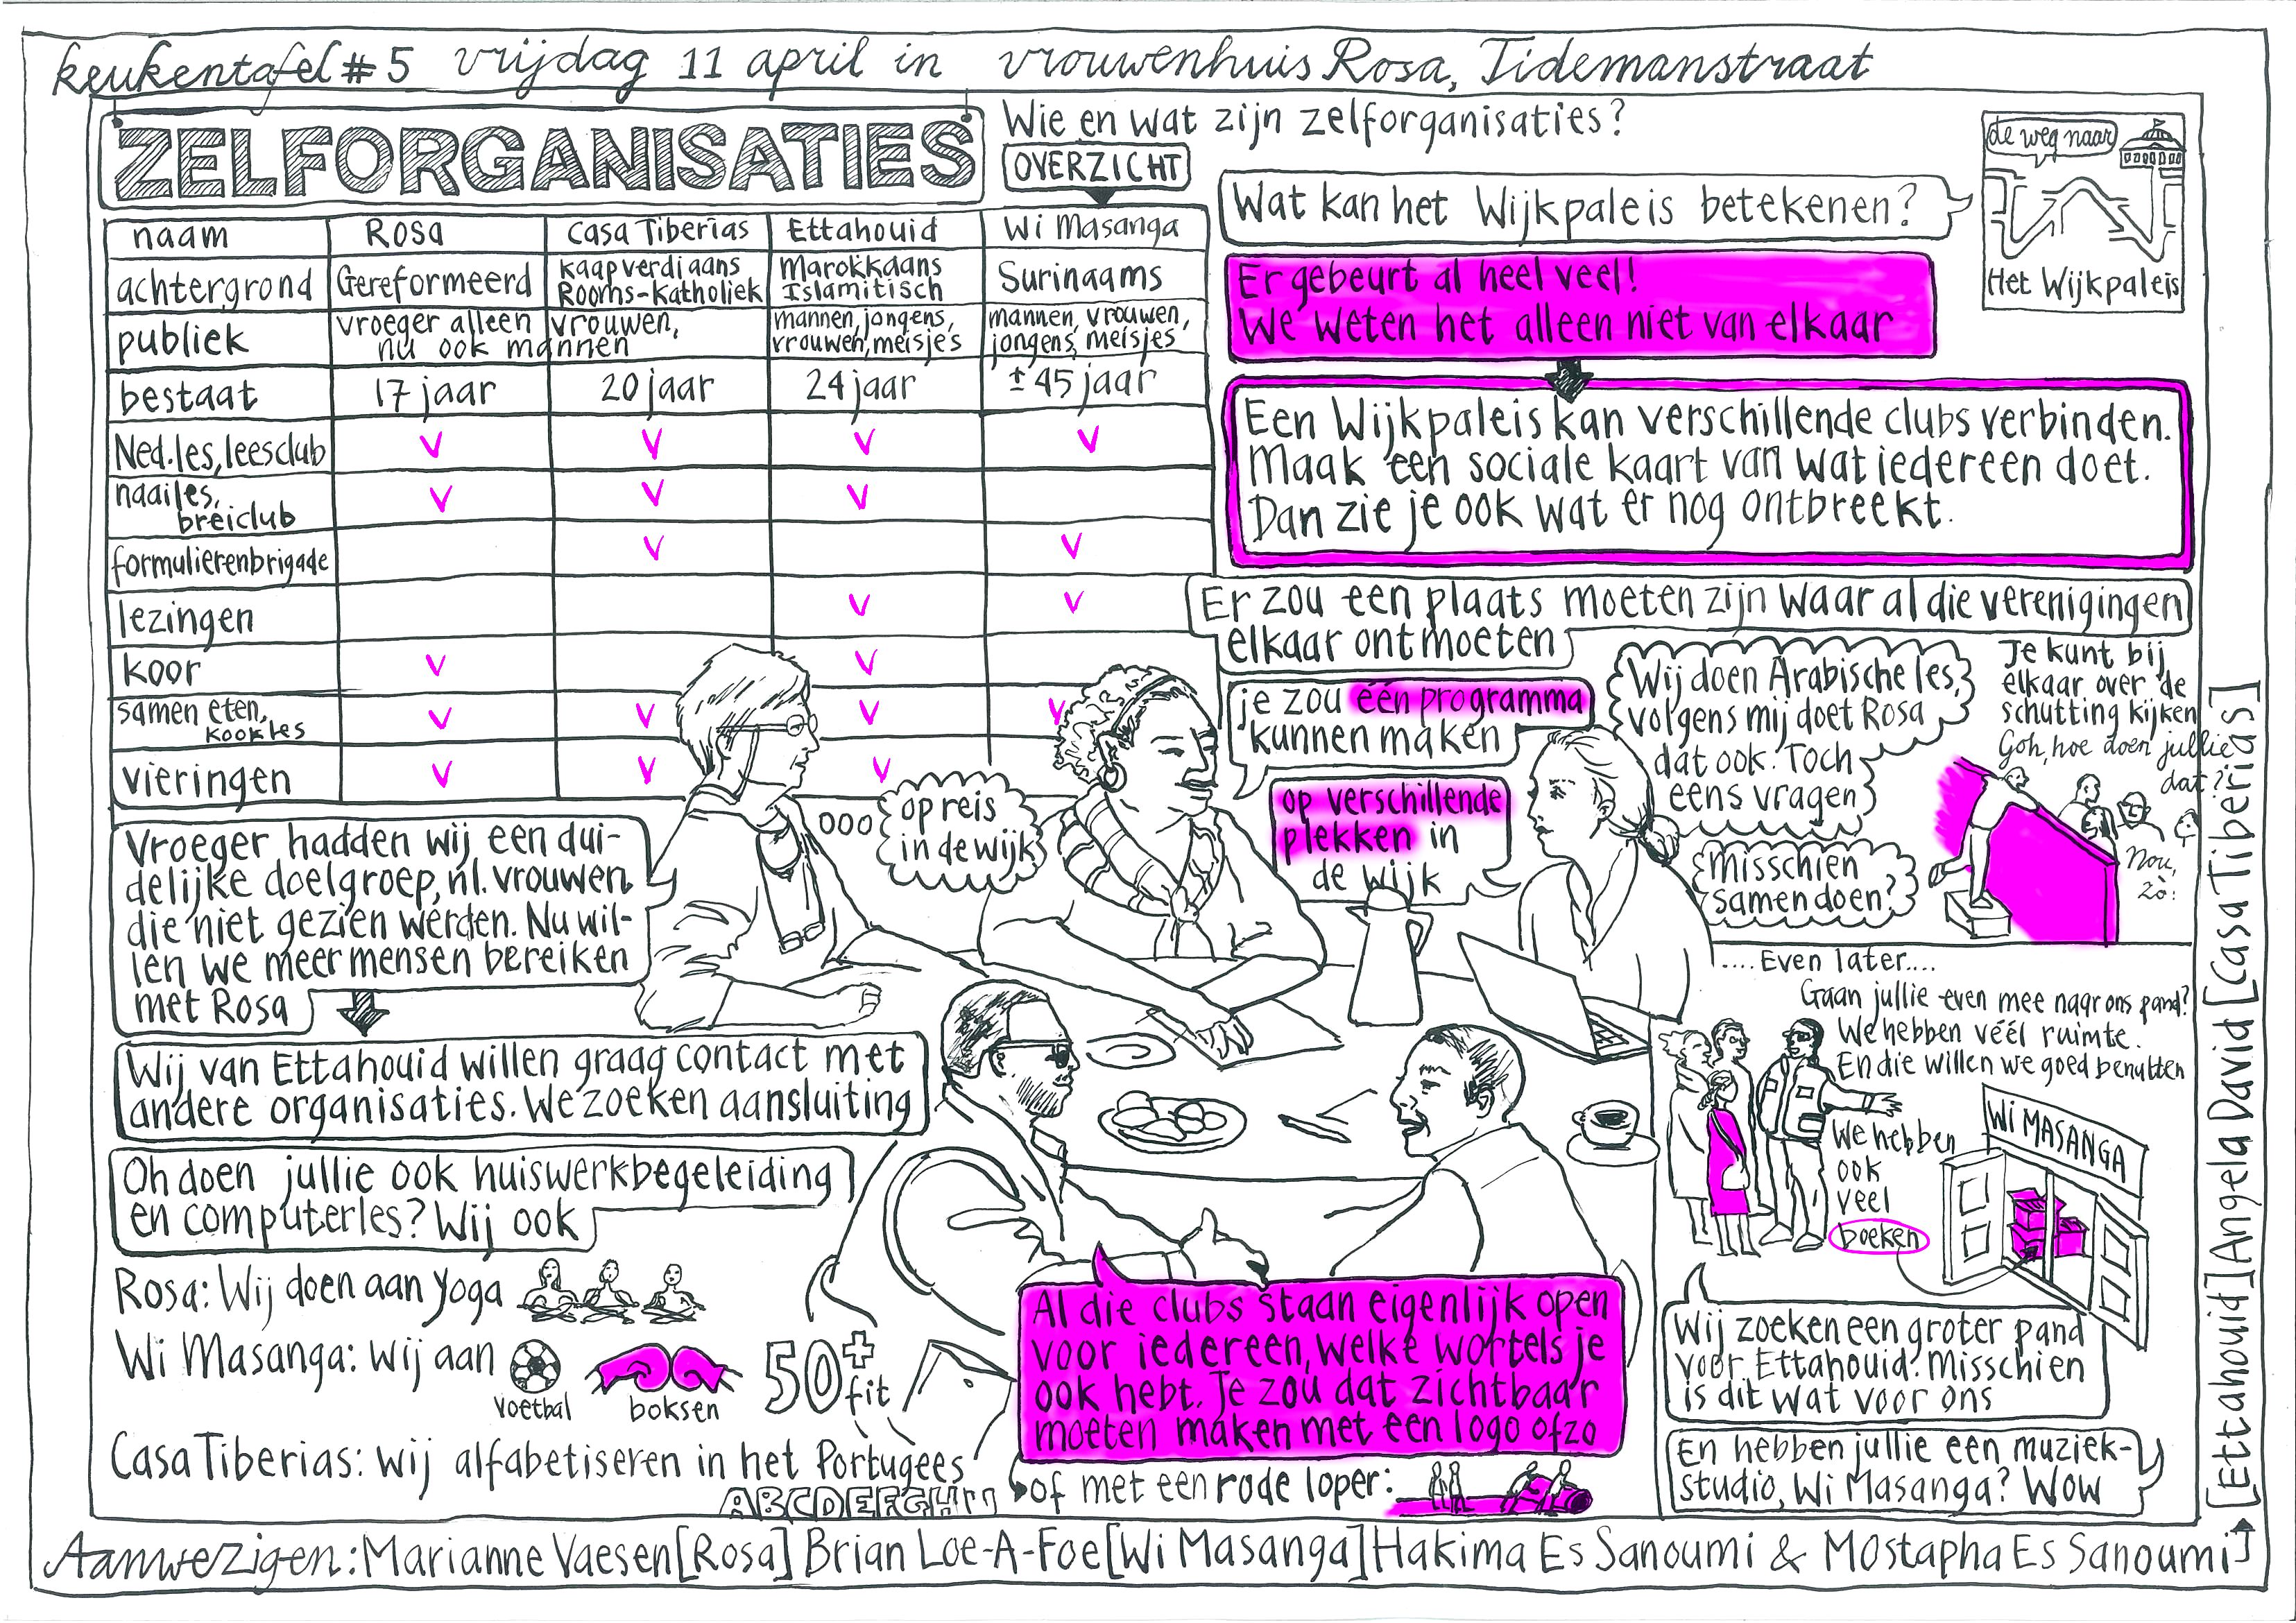 keukentafel #5 vrijdag 11 april in vrouwenhuis Rosa, Tidemanstraat
ZELFORGANISATIES
Wie en wat zijn zelforganisaties?
OVERZICHT
naam Rosa Casa Tiberias Ettahouid Wi Masanga
achtergrond Gereformeerd Kaapverdiaans Rooms-Katholiek Marokkaans Islamitisch Surinaams
publiek vroeger alleen vrouwen, nu ook mannen mannen, jongens, vrouwen, meisjes mannen, vrouwen, jongens, meisjes
bestaat 17 jaar 20 jaar 24 jaar ± 45 jaar
Ned.les, leesclub V V V V
naailes, breiclub V V V
formulierenbrigade V V
lezingen V V
koor V V
samen eten, kookles V V V V
vieringen V V V
de weg naar
Het Wijkpaleis
Wat kan het Wijkpaleis betekenen?
Er gebeurt al heel veel!
We weten het alleen niet van elkaar
Een Wijkpaleis kan verschillende clubs verbinden.
Maak een sociale kaart van wat iedereen doet.
Dan zie je ook wat er nog ontbreekt.
Er zou een plaats moeten zijn waar al die verenigingen
elkaar ontmoeten
je zou één programma
kunnen maken
op verschillende
plekken in
de wijk
Wij doen Arabische les,
volgens mij doet Rosa
dat ook. Toch
eens vragen
Misschien
samen doen?
Je kunt bij
elkaar over de
schutting kijken
Goh, hoe doen jullie
dat?
Nou,
zò!
op reis
in de wijk
Vroeger hadden wij een dui-
delijke doelgroep, nl. vrouwen
die niet gezien werden. Nu wil-
len we meer mensen bereiken
met Rosa
Wij van Ettahouid willen graag contact met
andere organisaties. We zoeken aansluiting
Oh doen jullie ook huiswerkbegeleiding
en computerles? Wij ook
Rosa: Wij doen aan yoga
Wi Masanga: wij aan
voetbal
boksen
50+
fit
Casa Tiberias: wij alfabetiseren in het Portugees
ABCDEFGHIJ
Al die clubs staan eigenlijk open
voor iedereen, welke wortels je
ook hebt. Je zou dat zichtbaar
moeten maken met een logo ofzo
of met een rode loper:
....Even later....
Gaan jullie even mee naar ons pand?
We hebben véél ruimte.
En die willen we goed benutten
We hebben
ook
veel
boeken
Wi MASANGA
Wij zoeken een groter pand
voor Ettahouid. Misschien
is dit wat voor ons
En hebben jullie een muziek-
studio, Wi Masanga? Wow
Aanwezigen: Marianne Vaesen [Rosa] Brian Loe-A-Foe [Wi Masanga] Hakima Es Sanoumi & Mostapha Es Sanoumi
[Ettahouid] Angela David [Casa Tiberias]